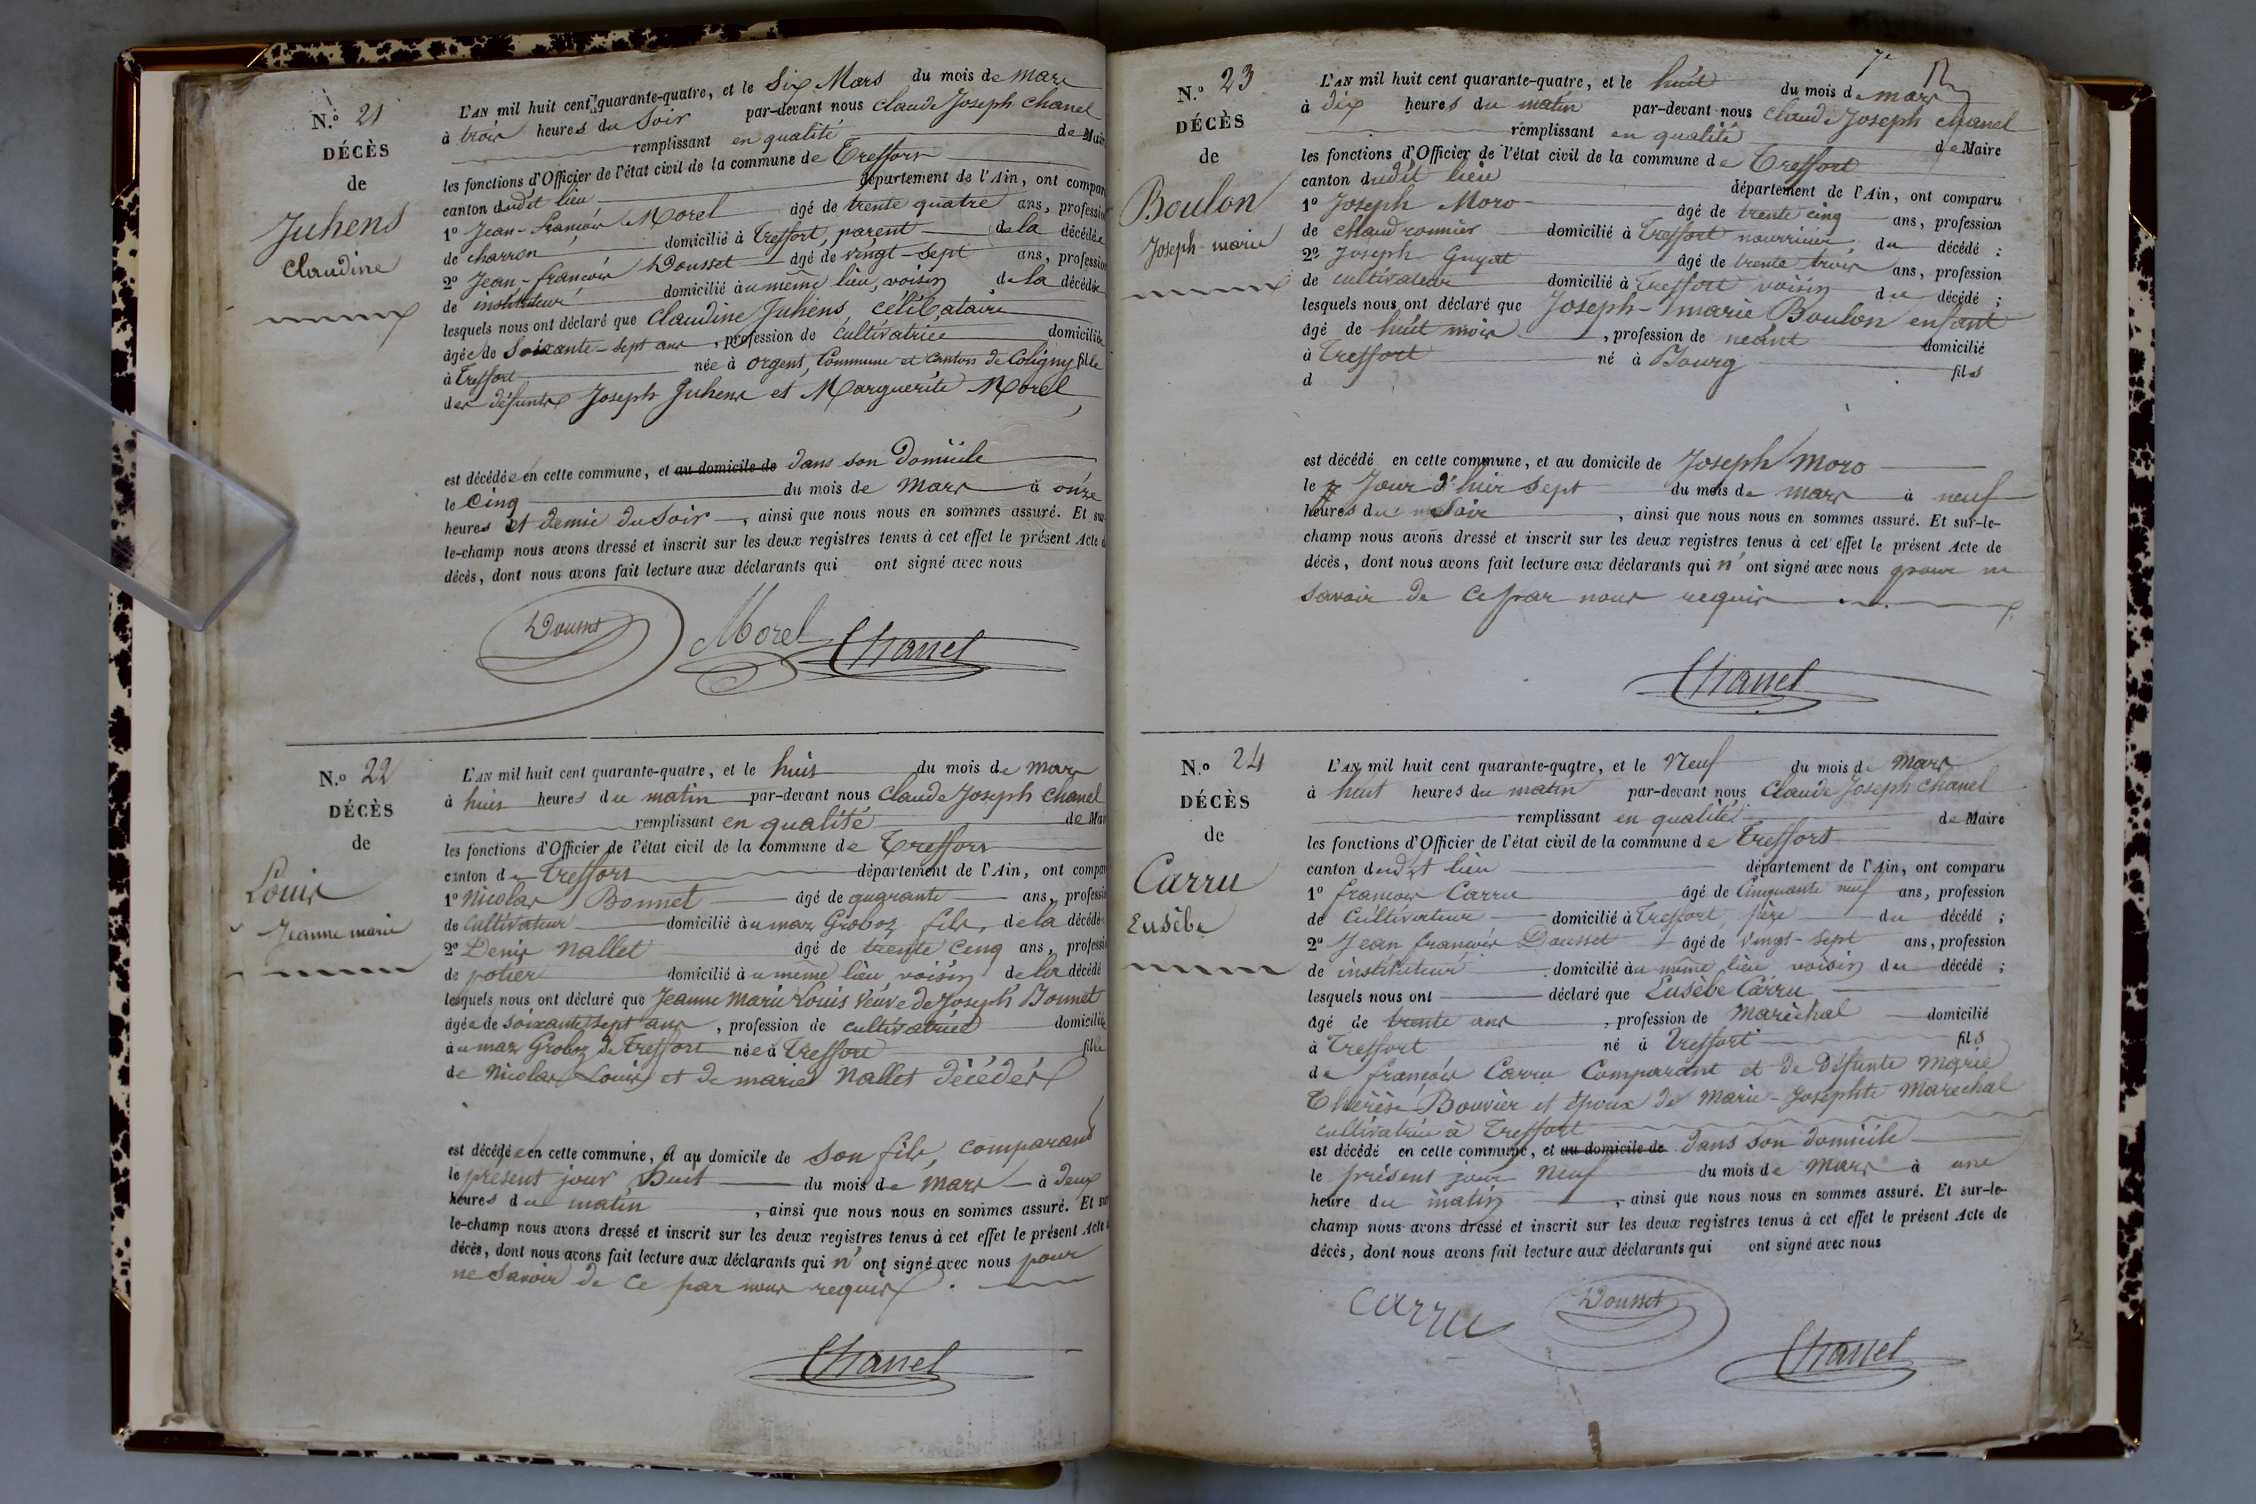 N.º 21
DÉCÈS
de
Juhens
Claudine
L'AN mil huit cent quarante-quatre, et le Six Mars du mois de mars
à trois heures du Soir par-devant nous Claude Joseph Chanel
remplissant en qualité de Maire
les fonctions d'Officier de l'état civil de la commune de Treffort
canton dudit lieu département de l'Ain, ont compar
1º Jean-François Morel âgé de trente quatre ans, profession
de charron domicilié à Treffort, parent de la décédée
2º Jean-françois Dousset âgé de vingt-sept ans, profession
de instituteur domicilié au même lieu, voisin de la décédée
lesquels nous ont déclaré que Claudine Juhens, célibataire
âgée de Soixante-sept ans, profession de cultivatrice domiciliée
à Treffort née à orgent, Commune et Canton de Coligny fille
des défunts Joseph Juhens et Marguerite Morel,
est décédée en cette commune, et au domicile de dans son Domicile
le Cinq du mois de Mars à onze
heures et demie du Soir, ainsi que nous nous en sommes assuré. Et sur
le-champ nous avons dressé et inscrit sur les deux registres tenus à cet effet le présent Acte d
décès, dont nous avons fait lecture aux déclarants qui ont signé avec nous
Dousset Morel Chanel
N.º 22
DÉCÈS
de
Louis
Jeanne marie
L'AN mil huit cent quarante-quatre, et le huit du mois de mars
à huit heures du matin par-devant nous Claude Joseph Chanel
remplissant en qualité de Mai
les fonctions d'Officier de l'état civil de la commune de Treffort
canton de Treffort département de l'Ain, ont compar
1º Nicolas Bonnet âgé de quarante ans, profession
de Cultivateur domicilié au maz Groboz fils, de la décédée
2º Denis Nallet âgé de trente cinq ans, profession
de potier domicilié au même lieu, voisin de la décédé
lesquels nous ont déclaré que Jeanne Marie Louis Veuve de Joseph Bonnet
âgée de soixante sept ans, profession de cultivatrice domiciliée
au maz Groboz de Treffort née à Treffort fille
de Nicolas Louis et de marie Nallet décédés
est décédée en cette commune, et au domicile de son fils, comparant
le présent jour Huit du mois de Mars à deux
heures du matin, ainsi que nous nous en sommes assuré. Et sur
le-champ nous avons dressé et inscrit sur les deux registres tenus à cet effet le présent Acte d
décès, dont nous avons fait lecture aux déclarants qui n'ont signé avec nous pour
ne Savoir de ce par nous requis.
Chanel
7e
N.º 23
DÉCÈS
de
Boulon
Joseph marie
L'AN mil huit cent quarante-quatre, et le huit du mois de mars
à dix heures du matin par-devant nous Claude Joseph Chanel
remplissant en qualité de Maire
les fonctions d'Officier de l'état civil de la commune de Treffort
canton dudit lieu département de l'Ain, ont comparu
1º Joseph Moro âgé de trente cinq ans, profession
de chaudronnier domicilié à Treffort nourricier du décédé ;
2º Joseph Guyat âgé de trente trois ans, profession
de cultivateur domicilié à Treffort voisin du décédé ;
lesquels nous ont déclaré que Joseph-marie Boulon enfant
âgé de huit mois, profession de néant domicilié
à Treffort né à Bourg fils
d
est décédé en cette commune, et au domicile de Joseph Moro
le Jour d'hier sept du mois de mars à neuf
heures du Soir, ainsi que nous nous en sommes assuré. Et sur-le-
champ nous avons dressé et inscrit sur les deux registres tenus à cet effet le présent Acte de
décès, dont nous avons fait lecture aux déclarants qui n'ont signé avec nous pour ne
savoir de ce par nous requis
Chanel
N.º 24
DÉCÈS
de
Carru
Eusèbe
L'AN mil huit cent quarante-quatre, et le Neuf du mois de Mars
à huit heures du matin par-devant nous Claude Joseph Chanel
remplissant en qualité de Maire
les fonctions d'Officier de l'état civil de la commune de Treffort
canton dudit lieu département de l'Ain, ont comparu
1º françois Carru âgé de Cinquante neuf ans, profession
de Cultivateur domicilié à Treffort, père du décédé ;
2º Jean françois Dousset âgé de vingt-sept ans, profession
de instituteur domicilié au même lieu voisin du décédé ;
lesquels nous ont déclaré que Eusèbe Carru
âgé de trente ans, profession de Maréchal domicilié
à Treffort né à Treffort fils
de françois Carru Comparant et de Défunte Marie
Thérèse Bouvier et époux de Marie-Josephte Marechal
cultivatrice à Treffort
est décédé en cette commune, et au domicile de dans son domicile
le présent jour Neuf du mois de Mars à une
heure du matin, ainsi que nous nous en sommes assuré. Et sur-le-
champ nous avons dressé et inscrit sur les deux registres tenus à cet effet le présent Acte de
décès, dont nous avons fait lecture aux déclarants qui ont signé avec nous
Carru Dousset Chanel